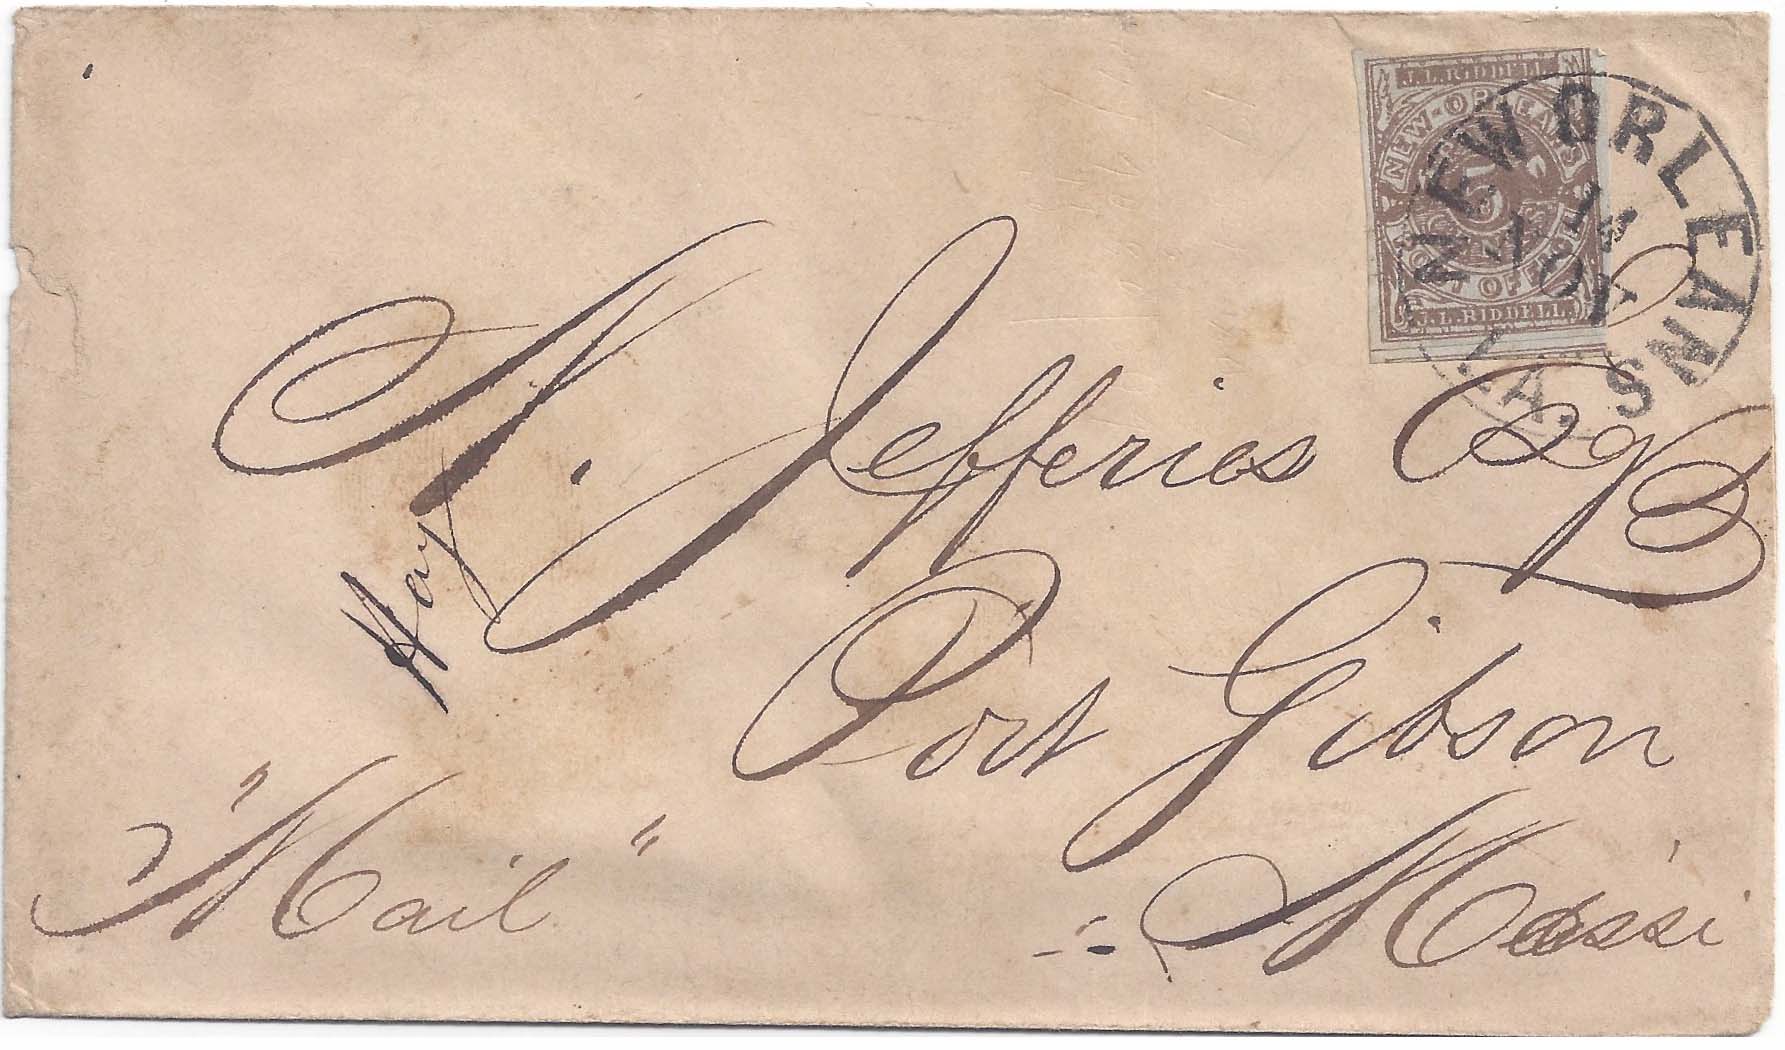 J.L.RIDDELL.
NEW-ORLEANS
5
CENTS
POST OFFICE
J.L.RIDDELL.
NEW ORLEANS
14
LA.
N. Jefferies Esqr
Hay
Port Gibson
"Mail"
Missi